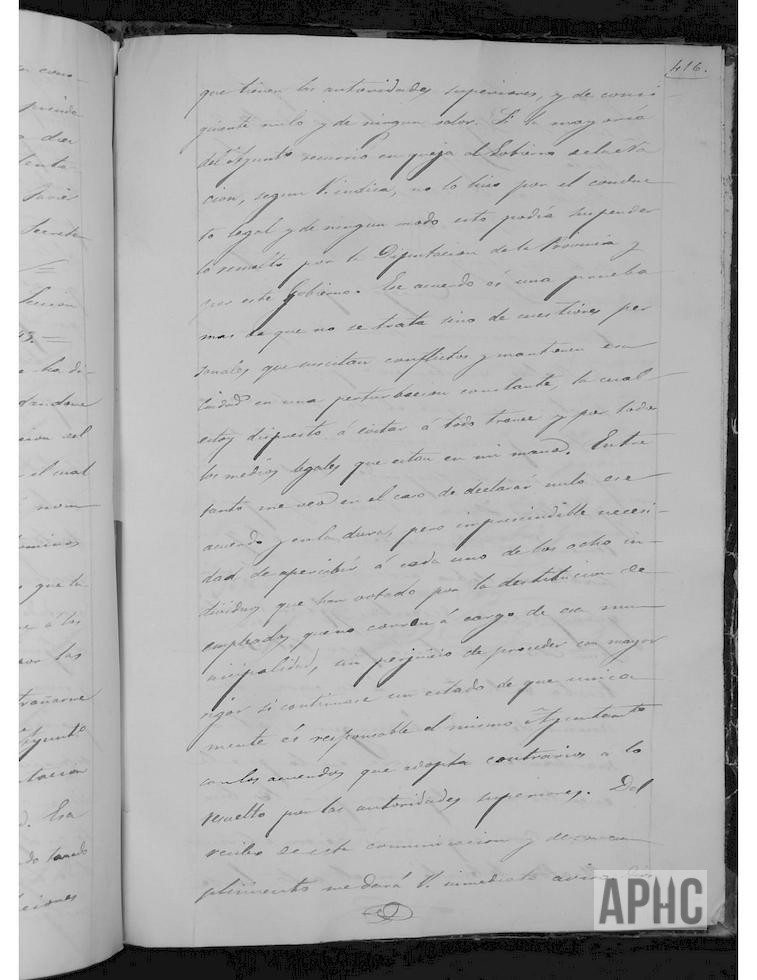 416.
que tienen las autoridades superiores, y de consi-
guiente nulo y de ningun valor. Si la mayoria
del Ayunto recurrió en queja al Gobierno
cion, segun V. indica, no lo hizo por el conduc-
to legal y de ningun modo esto podia suspender
lo resuelto por la Diputacion de la Provincia y
por este Gobierno. Ese acuerdo es una prueba
mas de que no se trata sino de cuestiones per
sonales que suscitan conflictos y mantienen esa
Ciudad en una perturbacion constante, la cual
estoy dispuesto á evitar á todo trance y por todos
los medios legales que estan en mi mano. Entre
tanto me veo en el caso de declarar nulo ese
acuerdo y en la dura, pero imprescindible necesi-
dad de apercibir á cada uno de los ocho in-
dividuos que han votado por la destitucion de
empleados que no corren á cargo de esa mu-
nicipalidad, sin perjuicio de proceder con mayor
rigor si continuase un estado de que unica-
mente es responsable el mismo Ayuntamto
con los acuerdos que adopta contrarios a lo
resuelto por las autoridades superiores. Del
recibo de esta comunicacion y de su cum
plimiento me dará V. inmediato aviso. Dios
dar
Javier
Secreta
Seccion
ha di-
sion del
el cual
nom
que la
á los
por las
Ayunto
tacion
Esa
ciones
APHC